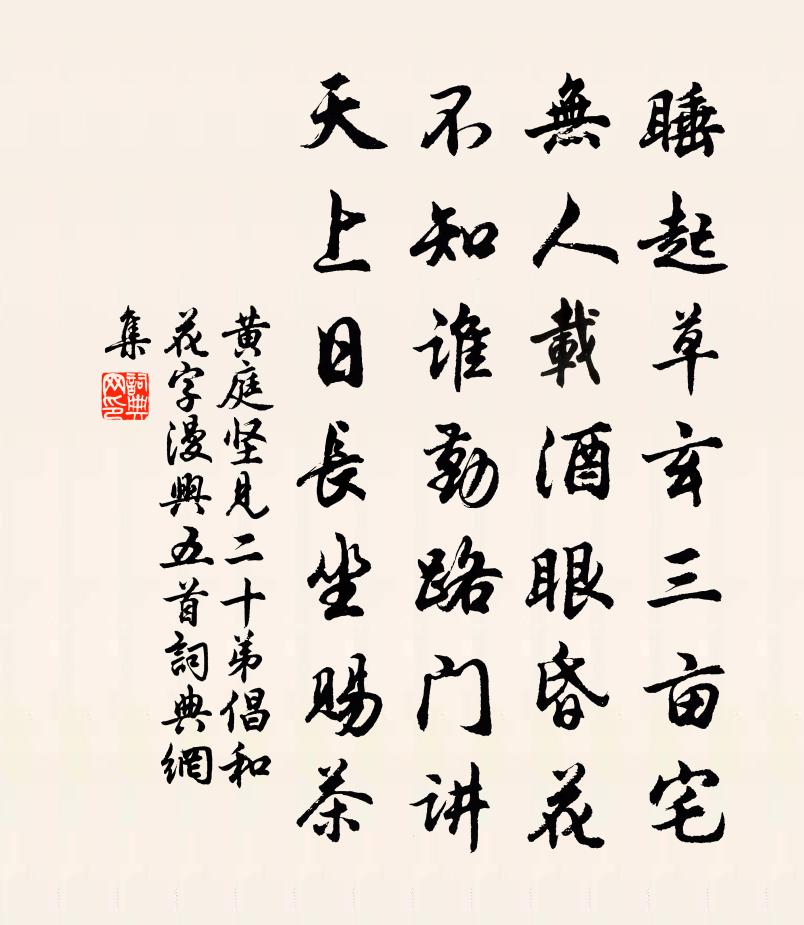 睡起草玄三亩宅
無人載酒眼昏花
不知谁勤路门讲
天上日長坐赐茶
黄庭坚見二十弟倡和
花字漫興五首詞典網
集
詞典
网印